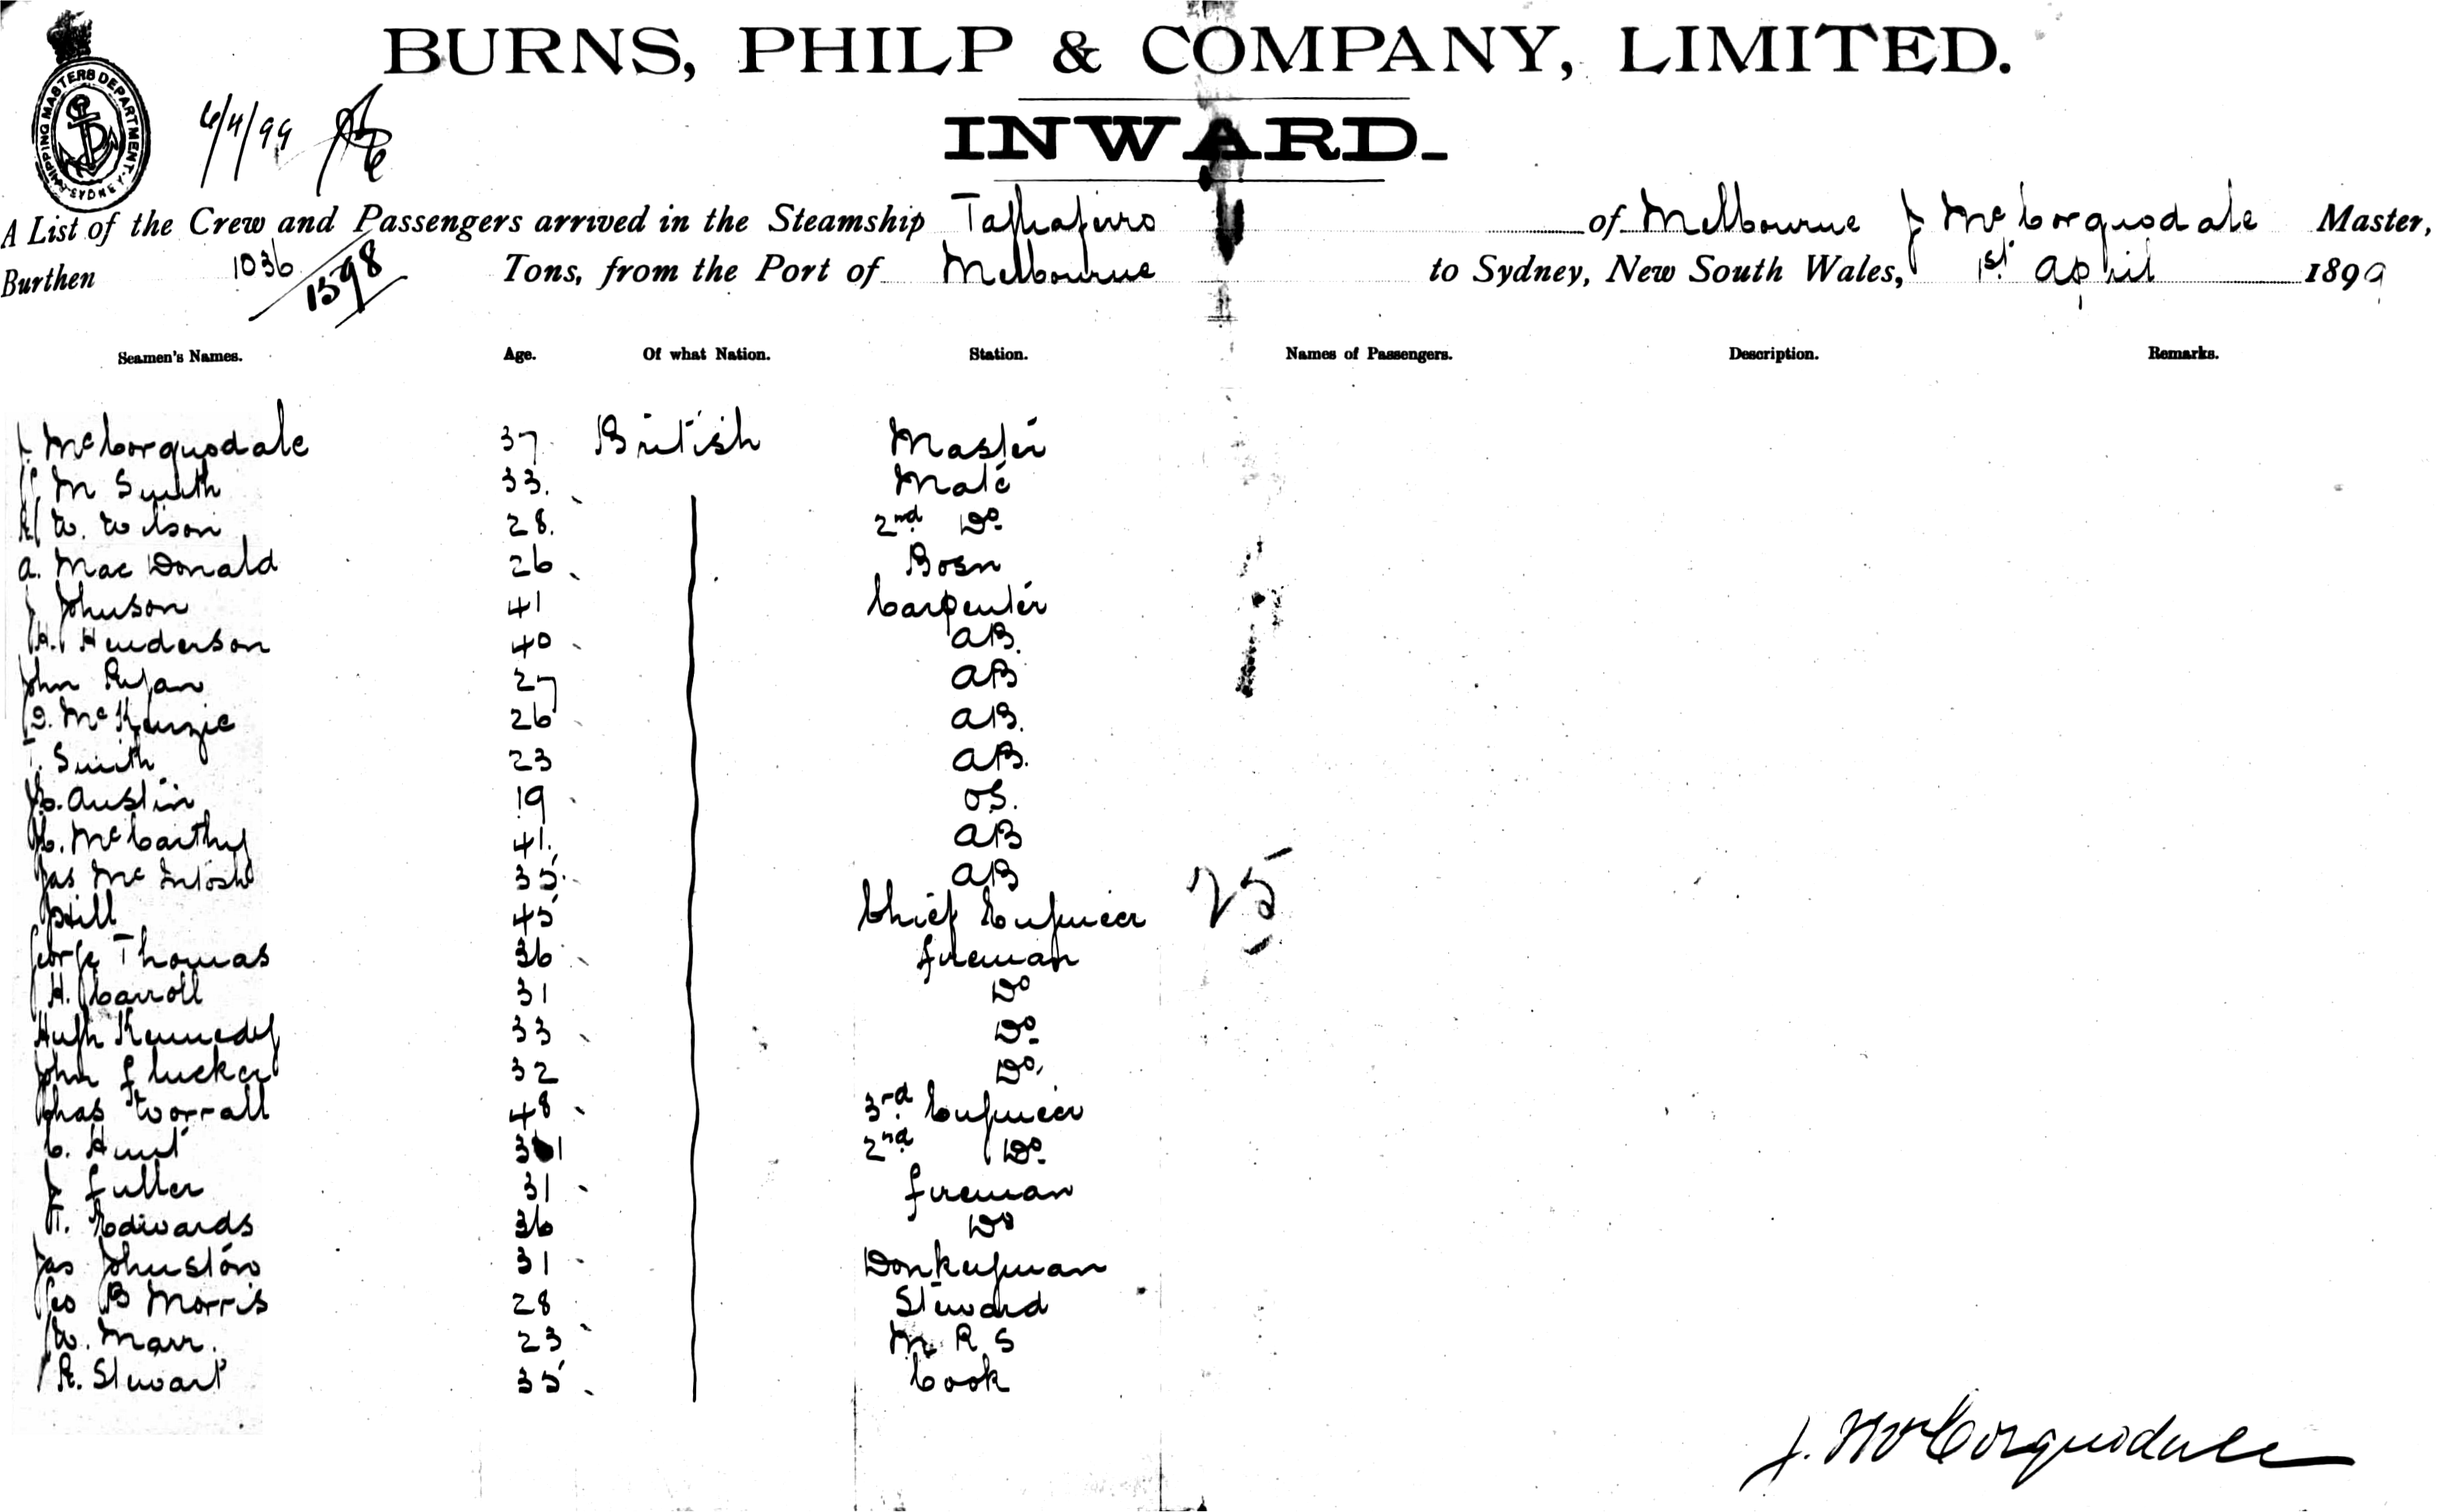 BURNS, PHILP & COMPANY, LIMITED.
SHIPPING MASTERS DEPARTMENT. SYDNEY
6/4/99
INWARD.
A List of the Crew and Passengers arrived in the Steamship of Melbourne J McCorquodale Master,
Burthen 1036 1598 Tons, from the Port of Melbourne to Sydney, New South Wales, 1st April 1899
Seamen's Names. Age. Of what Nation. Station. Names of Passengers. Description. Remarks.
J. McCorquodale 37 British Master
M Smith 33. Mate
W. Wilson 28. 2nd Do
A. Mac Donald 26 Bosn
J Johnson 41 Carpenter
H. Henderson 40 AB.
John Ryan 27 AB
D. McKenzie 26 AB.
T. Smith 23 AB.
Austin 19 OS.
C. McCarthy 41. AB
Jas McIntosh 35 AB
J Hill 45 Chief Engineer 25
George Thomas 36 fireman
H. Carroll 31 Do
Hugh Kennedy 33 Do
John flucker 32 Do
Chas Worrall 48 3rd Engineer
C. Hunt 31 2nd Do
J fuller 31 fireman
T. Edwards 36 Do
Jas Johnston 31 Donkeyman
Geo B Morris 28 Steward
W. Marr. 23 M R S
R. Stewart 35 Cook
J. McCorquodale